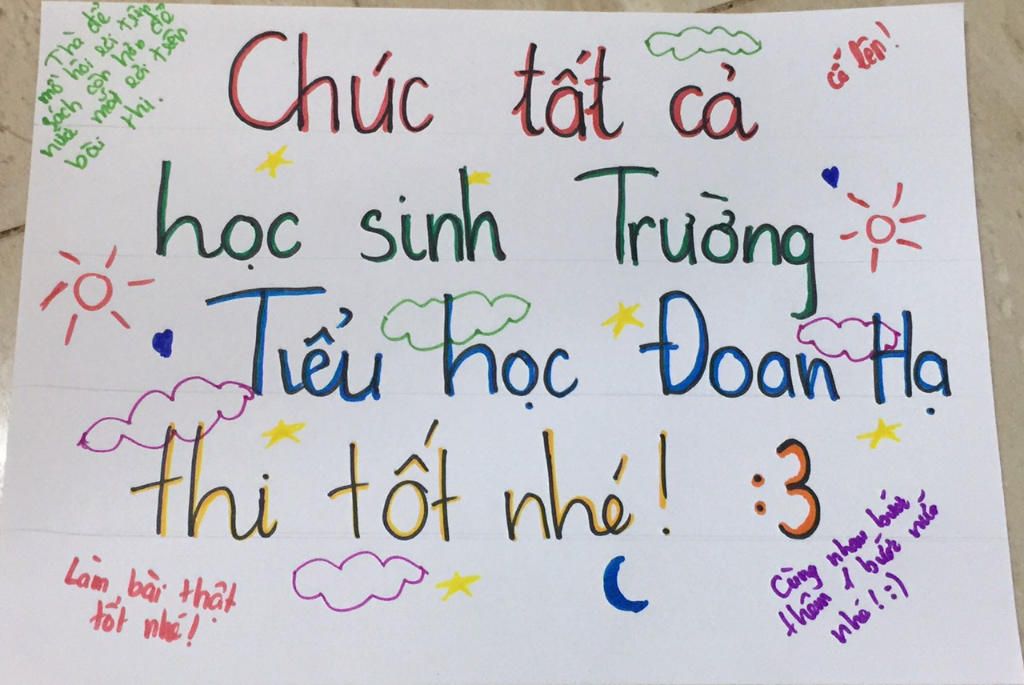 Chúc tất cả
học sinh Trường
Tiểu học Đoan Hạ
thi tốt nhé! :3
cố lên!
Thà để
mồ hôi rơi trên
sách còn hơn để
nước mắt rơi trên
bài thi.
Làm bài thật
tốt nhé!
Cùng nhau bước
thêm 1 bước nữa
nhé! :)